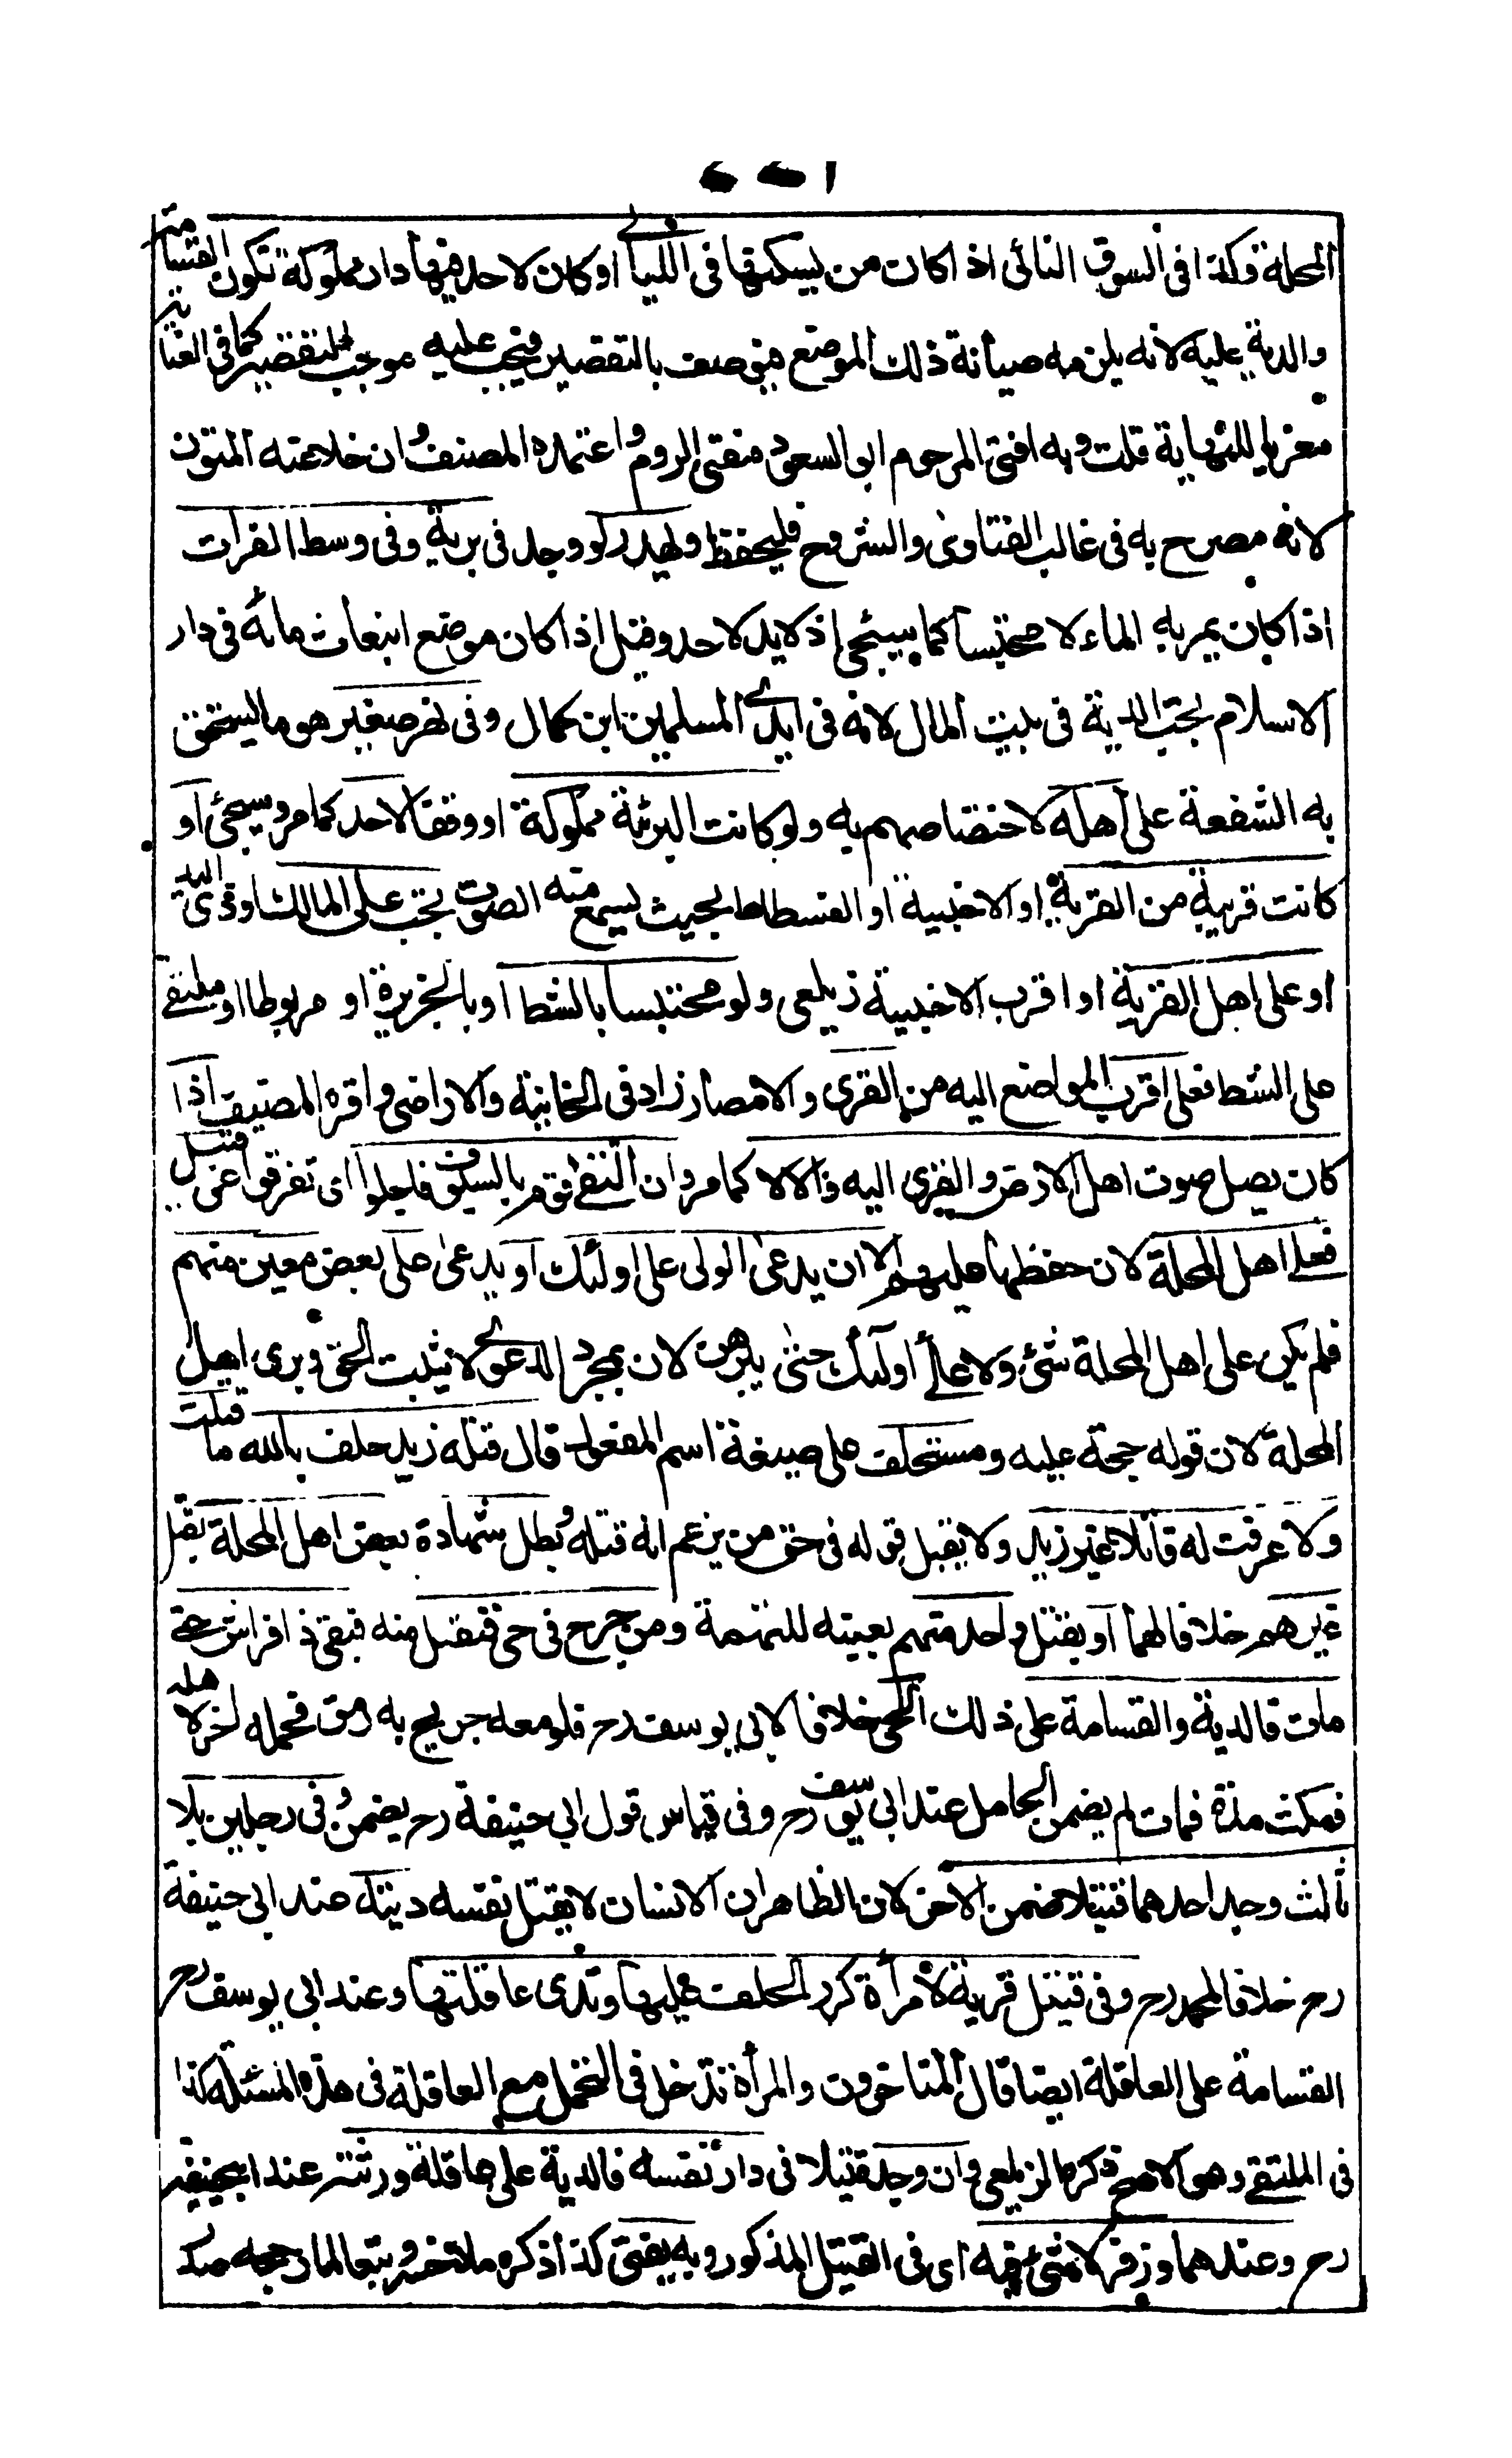 المحلة وكذا فى السوق النائى اذا كان من يسكنها فى الليالى او كان لاحد فيها دار مملوكة تكون القسامة
والدية عليه لانه يلزمه صيانة ذلك الموضع فيوصف بالتقصير فيجب عليه موجب التقصير كما فى العناية
معزيا للنهاية قلت وبه افتى المرحوم ابو السعود مفتى الروم واعتمده المصنف وان خلا عنه المتون
لانه مصرح به فى غالب الفتاوى والشروح فليحفظ ولهدر لو وجد فى برية وفى وسط الفرات
اذا كان يمر به الماء لا محتبسا كما سيجئ اذ لا يد لاحد وقيل اذا كان موضع انبعاث مائه فى دار
الاسلام تجب الدية فى بيت المال لانه فى ايدى المسلمين ابن كمال وفى نهر صغير هو ما يستحق
به الشفعة على اهله لاختصاصهم به ولو كانت البرية مملوكة او وقفا لاحد كما مر وسيجئ او
كانت قريبة من القرية او الاخبية او الفسطاط بحيث يسمع منه الصوت تجب على المالك او ذى اليد
او على اهل القرية او اقرب الاخبية زيلعى ولو محتبسا بالشط او بالجزيرة او مربوطا او ملقى
على الشط فعلى اقرب المواضع اليه من القرى والامصار زاد فى الخانية والاراضى واقره المصنف اذا
كان يصل صوت اهل الارض والقرى اليه والا لا كما مر وان التقى قوم بالسيوف فاجلوا اى تفرقوا عن قتيل
فعلى اهل المحلة لان حفظها عليهم الا ان يدعى الولى على اولئك او يدعى على بعض معين منهم
فلم يكن على اهل المحلة شئ ولا على اولئك حتى يبرهن لان بمجرد الدعوى لا يثبت الحق وبرى اهل
المحلة لان قوله حجة عليه ومستحلف على صيغة اسم المفعول قال قتله زيد حلف بالله ما قتلت
ولا عرفت له قاتلا غير زيد ولا يقبل قوله فى حق من يزعم انه قتله وبطل شهادة بعض اهل المحلة بقتل
غيرهم خلافا لهما او بقتل واحد منهم بعينه للتهمة ومن جرح فى حى فنقل منه فبقى ذا فراش حتى
مات فالدية والقسامة على ذلك الحى خلافا لابى يوسف رح فلو معه جريح به رمق فحمله اخر لاهله
فمكث مدة فمات لم يضمن الحامل عند ابى يوسف رح وفى قياس قول ابى حنيفة رح يضمن وفى رجلين بلا
ثالث وجد احدهما قتيلا ضمن الاخر لان الظاهر ان الانسان لا يقتل نفسه ديته عند ابى حنيفة
رح خلافا لمحمد رح وفى قتيل قرية لامرأة كرر الحلف عليها وتدى عاقلتها وعند ابى يوسف رح
القسامة على العاقلة ايضا قال المتاخرون والمرأة تدخل فى التحمل مع العاقلة فى هذه المسئلة كذا
فى الملتقى وهو الاصح ذكره الزيلعى وان وجد قتيلا فى دار نفسه فالدية على عاقلة ورثته عند ابيحنيفة
رح وعندهما وزفر لا شئ فيه اى فى القتيل المذكور وبه يفتى كذا ذكره ملا خسرو تبعا لما رجحه صدر